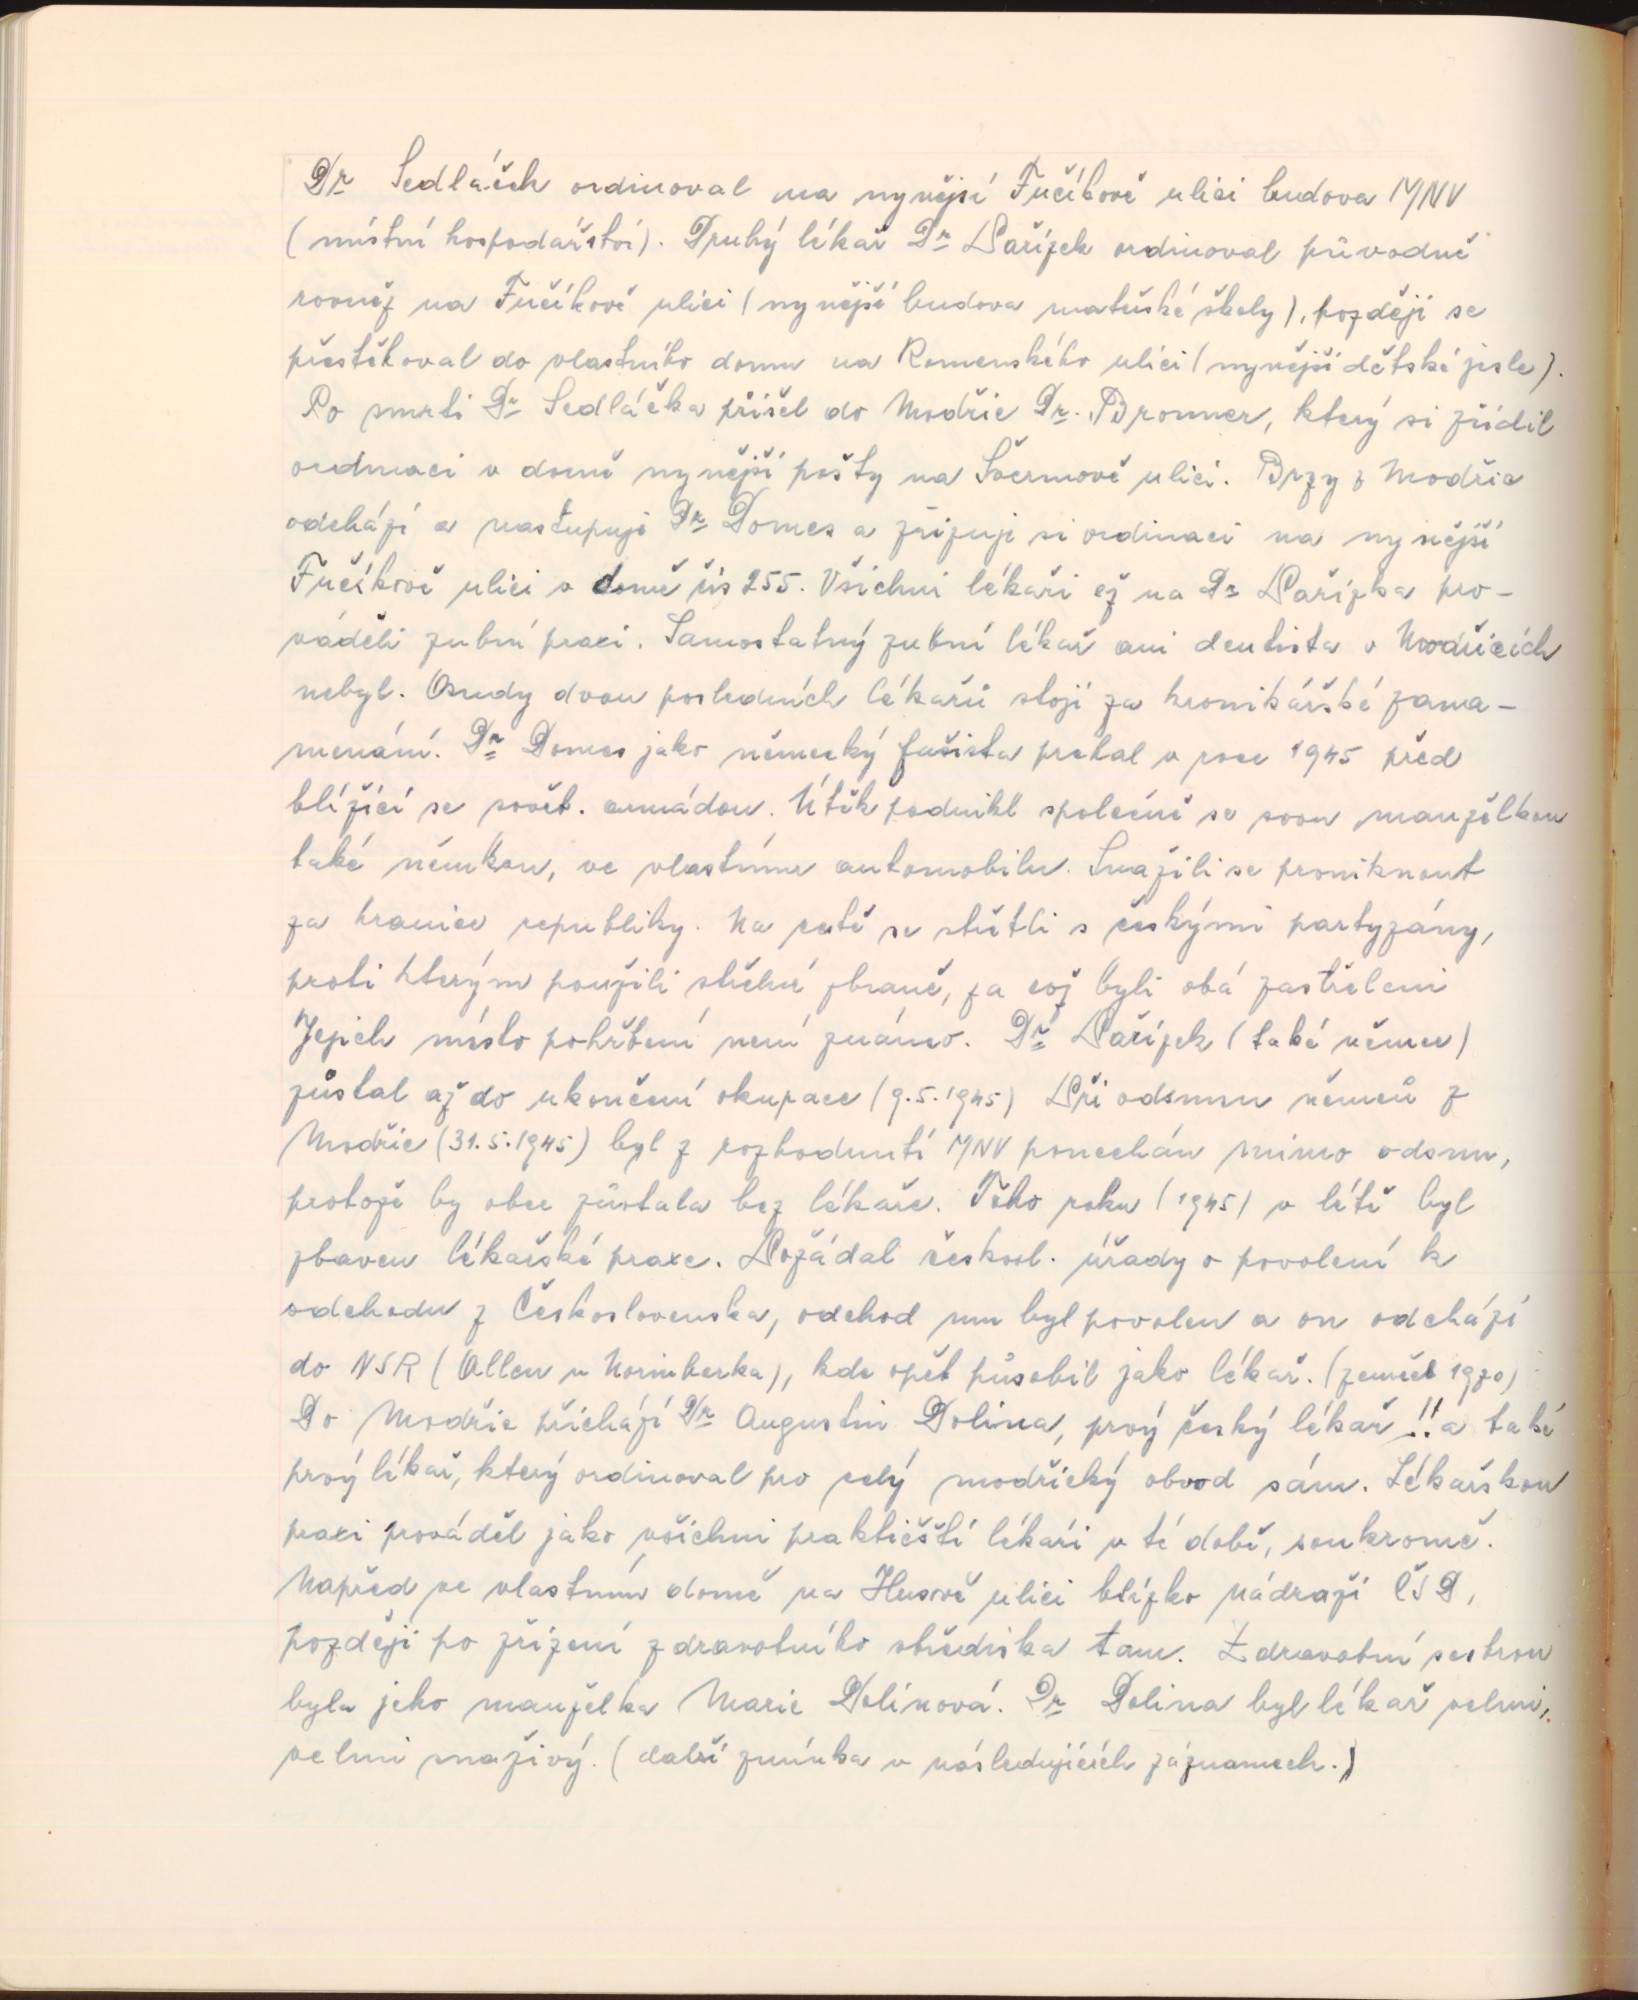 Dr Sedláček ordinoval na nynější Fučíkově ulici budova MNV
(místní hospodářství). Druhý lékař Dr Pařízek ordinoval původně
rovněž na Fučíkově ulici (nynější budova mateřské školy), později se
přestěhoval do vlastního domu na Komenského ulici (nynější dětské jesle).
Po smrti Dr Sedláčka přišel do Modřic Dr. Bronner, který si zřídil
ordinaci v domě nynější pošty na Švermově ulici. Brzy z Modřic
odchází a nastupuje Dr Domes a zřizuje si ordinaci na nynější
Fučíkově ulici v domě čís 255. Všichni lékaři až na Dr Pařízka pro-
váděli zubní praxi. Samostatný zubní lékař ani dentista v Modřicích
nebyl. Osudy dvou posledních lékařů stojí za kronikářské zazna-
menání. Dr Domes jako německý fašista prchal v roce 1945 před
blížící se sovět. armádou. Útěk podnikl společně se svou manželkou
také němkou, ve vlastním automobilu. Snažili se proniknout
za hranice republiky. Na cestě se střetli s českými partyzány,
proti kterým použili střelné zbraně, za což byli obá zastřeleni
Jejich místo pohřbení není známo. Dr Pařízek (také němec)
zůstal až do ukončení okupace (9.5.1945) Při odsunu němců z
Modřic (31.5.1945) byl z rozhodnutí MNV ponechán mimo odsun,
protože by obec zůstala bez lékaře. Tého roku (1945) v létě byl
zbaven lékařské praxe. Požádal českosl. úřady o povolení k
odchodu z Československa, odchod mu byl povolen a on odchází
do NSR (Allen u Norimberka), kde opět působil jako lékař. (zemřel 1970)
Do Modřic přichází Dr Augustin Dolina, prvý český lékař !! a také
prvý lékař, který ordinoval pro celý modřický obvod sám. Lékařskou
praxi prováděl jako všichni praktičtí lékaři v té době, soukromě.
Napřed ve vlastním domě na Husově ulici blízko nádraží ČSD,
později po zřízení zdravotního střediska tam. Zdravotní sestrou
byla jeho manželka Marie Dolínová. Dr Dolina byl lékař velmi,
velmi snaživý. (další zmínka v následujících záznamech.)